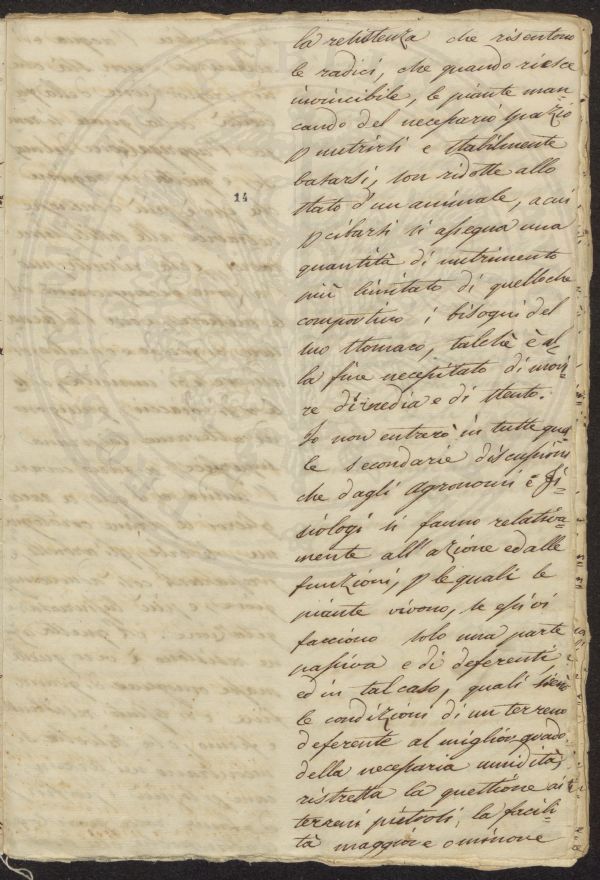 14
la resistenza che risentono
le radici, che quando riesce
invincibile, le piante man
cando del necessario spazio
p nutrirsi e stabilmente
basarsi, son ridotte allo
stato d'un animale, a cui
p cibarsi si assegna una
quantità di nutrimento
più limitato di quelloche
comportino i bisogni del
suo stomaco, talchè è al
la fine necessitato di mori=
re d'inedia e di stento.
Io non entrerò in tutte que
le secondarie discussioni
che dagli Agronomi e fi=
siologi si fanno relativa=
mente all'azione ed alle
funzioni, p le quali le
piante vivono, se essi vi
facciono solo una parte
passiva e di deferenti,
ed in tal caso, quali sieno
le condizioni di un terreno
deferente al miglior grado
della necessaria umidità;
ristretta la questione ai
terreni pietrosi, la facili=
tà maggiore o minore